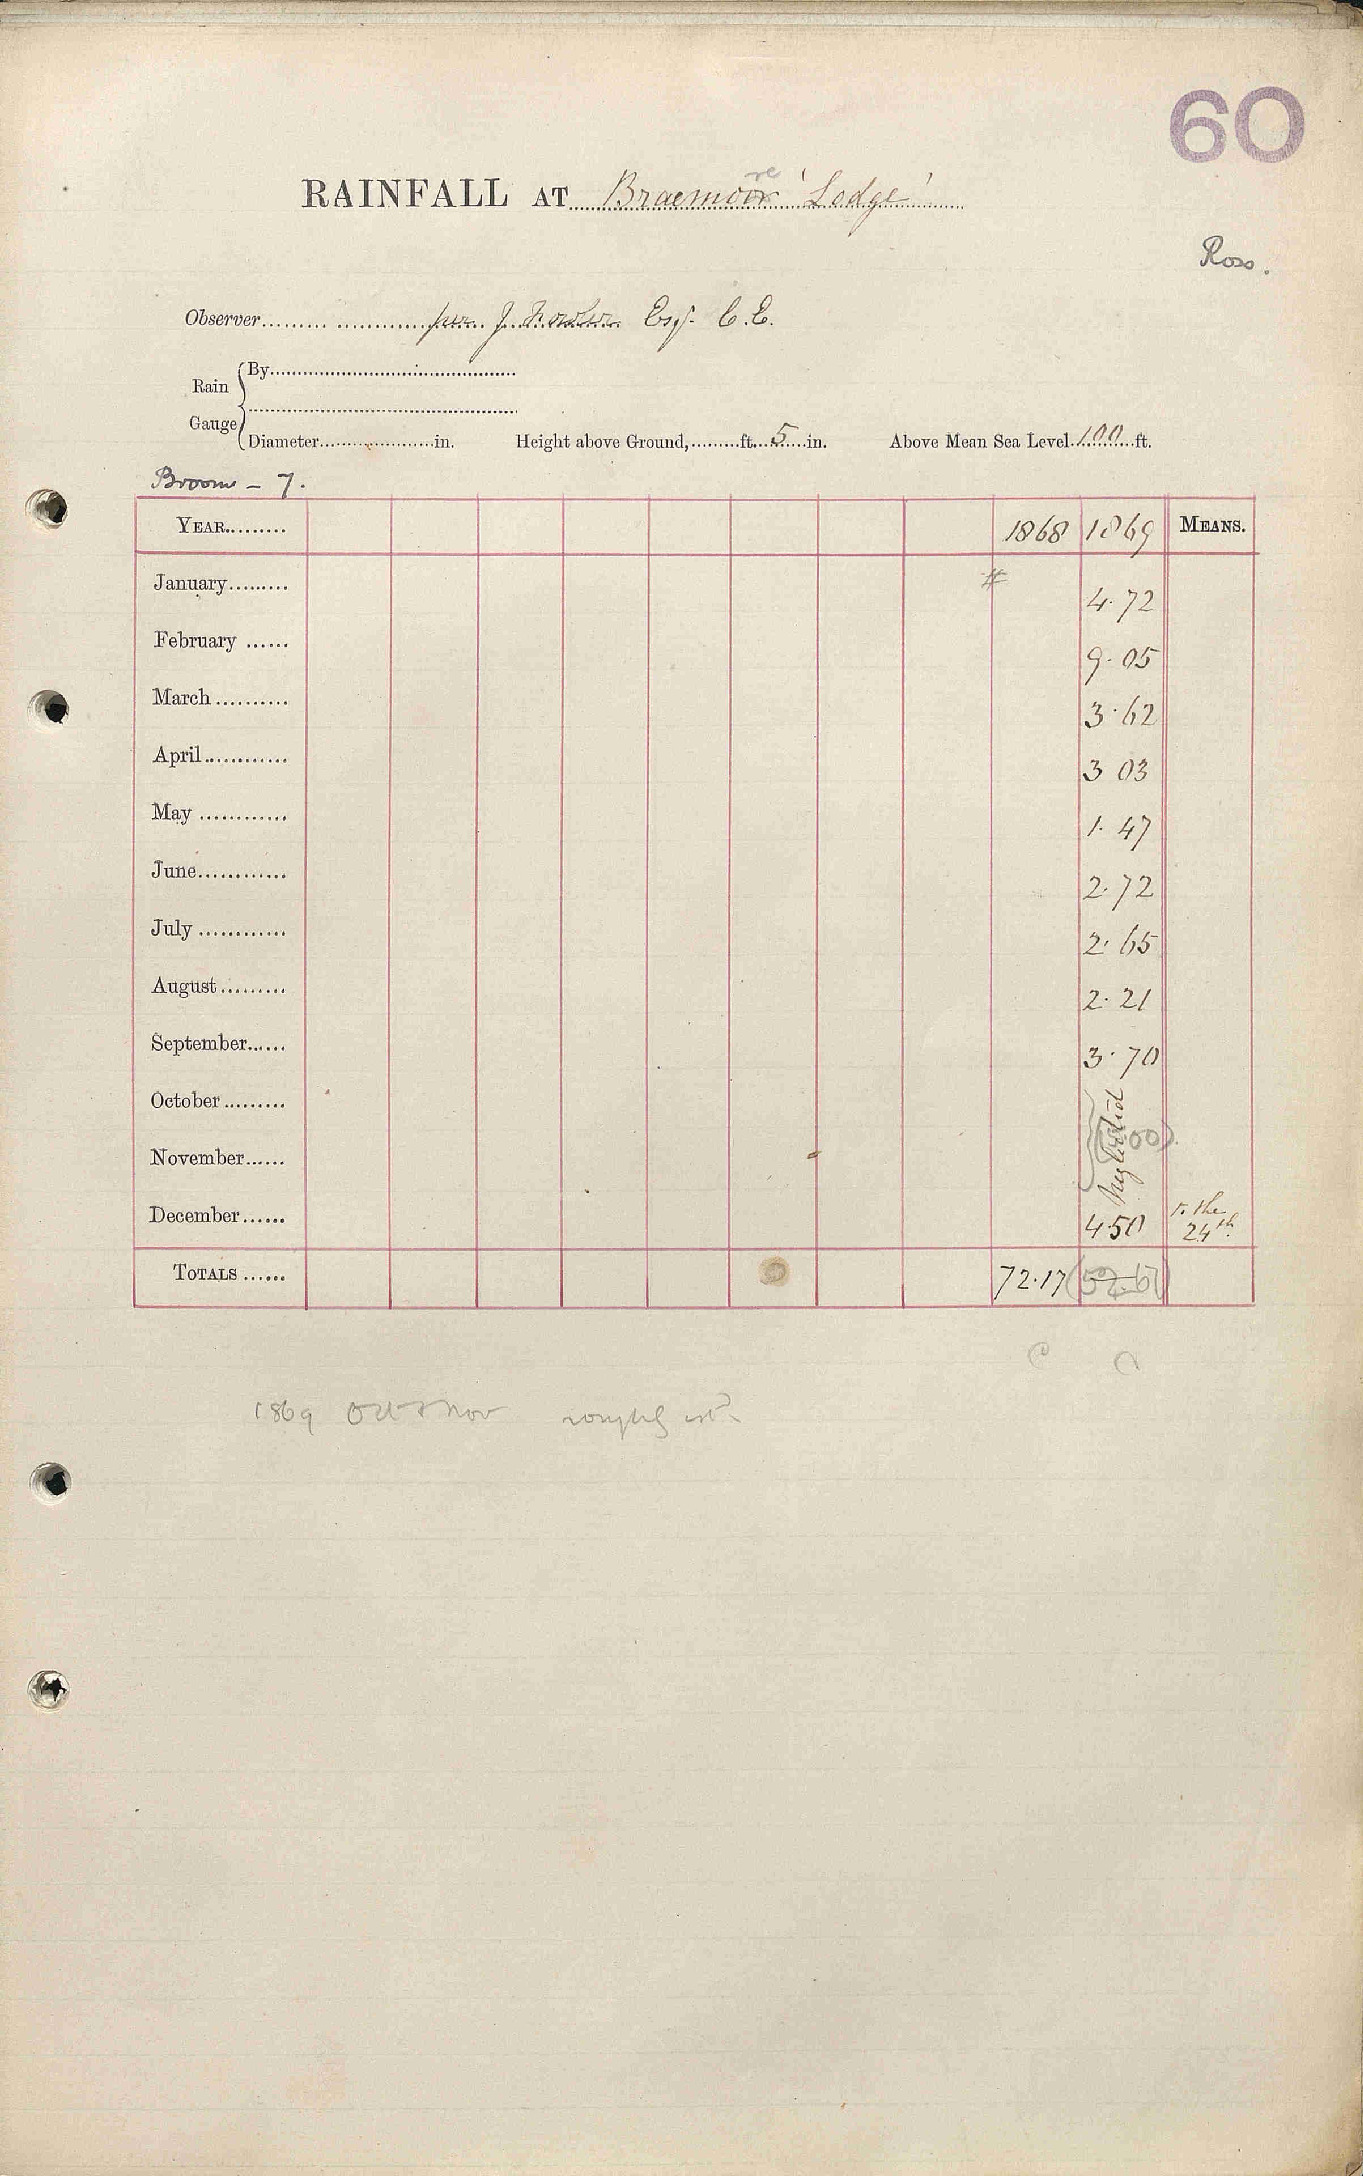 60
RAINFALL AT Braemoor 'Lodge'
re
Ross.
Observer per J. Fowler Esq. C.E.
Rain Gauge
By
Diameter in. Height above Ground, ft. 5 in. Above Mean Sea Level 100 ft.
Broom - 7.
YEAR 1868 1869 MEANS.
January # 4.72
February 9.05
March 3.62
April 3 03
May 1.47
June 2.72
July 2.65
August 2.21
September 3.70
October
neglected
November 00)
December 4.50 to the 24th.
TOTALS 72.17 (52.67)
C C
1869 Oct & Nov roughly est.